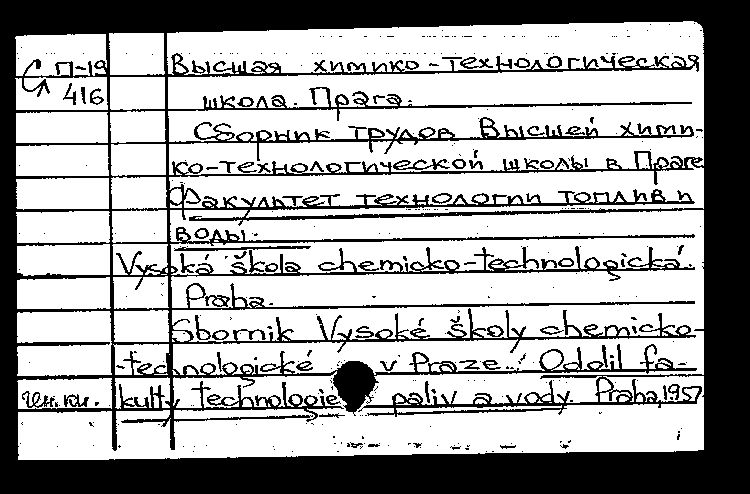 П-19
416
Высшая химико-технологическая
школа. Прага.
Сборник трудов Высшей хими-
ко-технологической школы в Праге
Факультет технологии топлив и
воды.
Vysoká škola chemicko-technologická.
Praha.
Sbornik Vysoké školy chemicko-
-technologické v Praze. Oddil fa-
kulty technologie paliv a vody. Praha, 1957